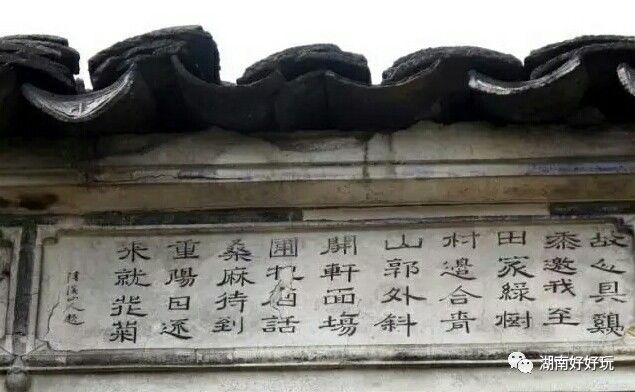 故人具鷄
黍邀我至
田家綠樹
村邊合青
山郭外斜
開軒面場
圃把酒話
桑麻待到
重陽日還
來就花菊
湖南好好玩